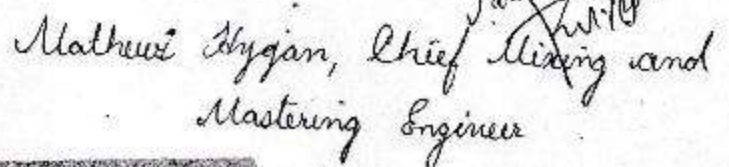 Mathewi Hygan, Chief Mixing and
Mastering Engineer